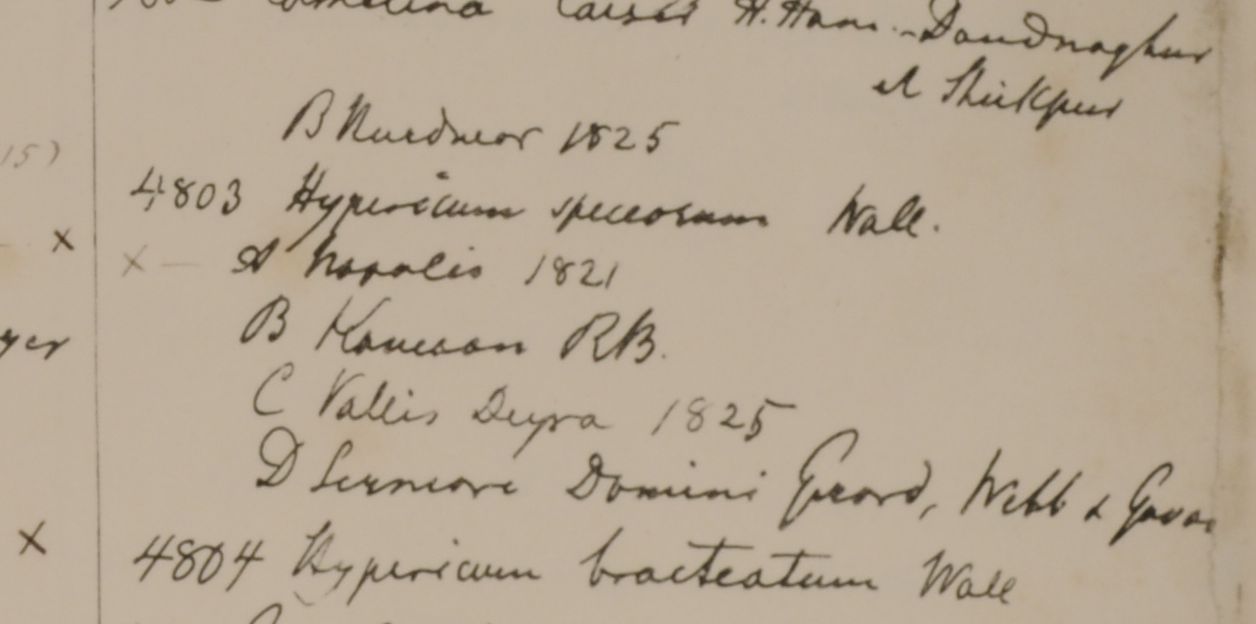 H. Ham. Daudnaghur
et Shikpur
B Hurdwar 1825
15)
4803 Hypericum speciosum Wall.
x
x — A Napalia 1821
B Kamaon RB.
yer
C Vallis Deyra 1825
D Sirmore Domini Gerard, Webb & Govan
x
4804 Hypericum bracteatum Wall